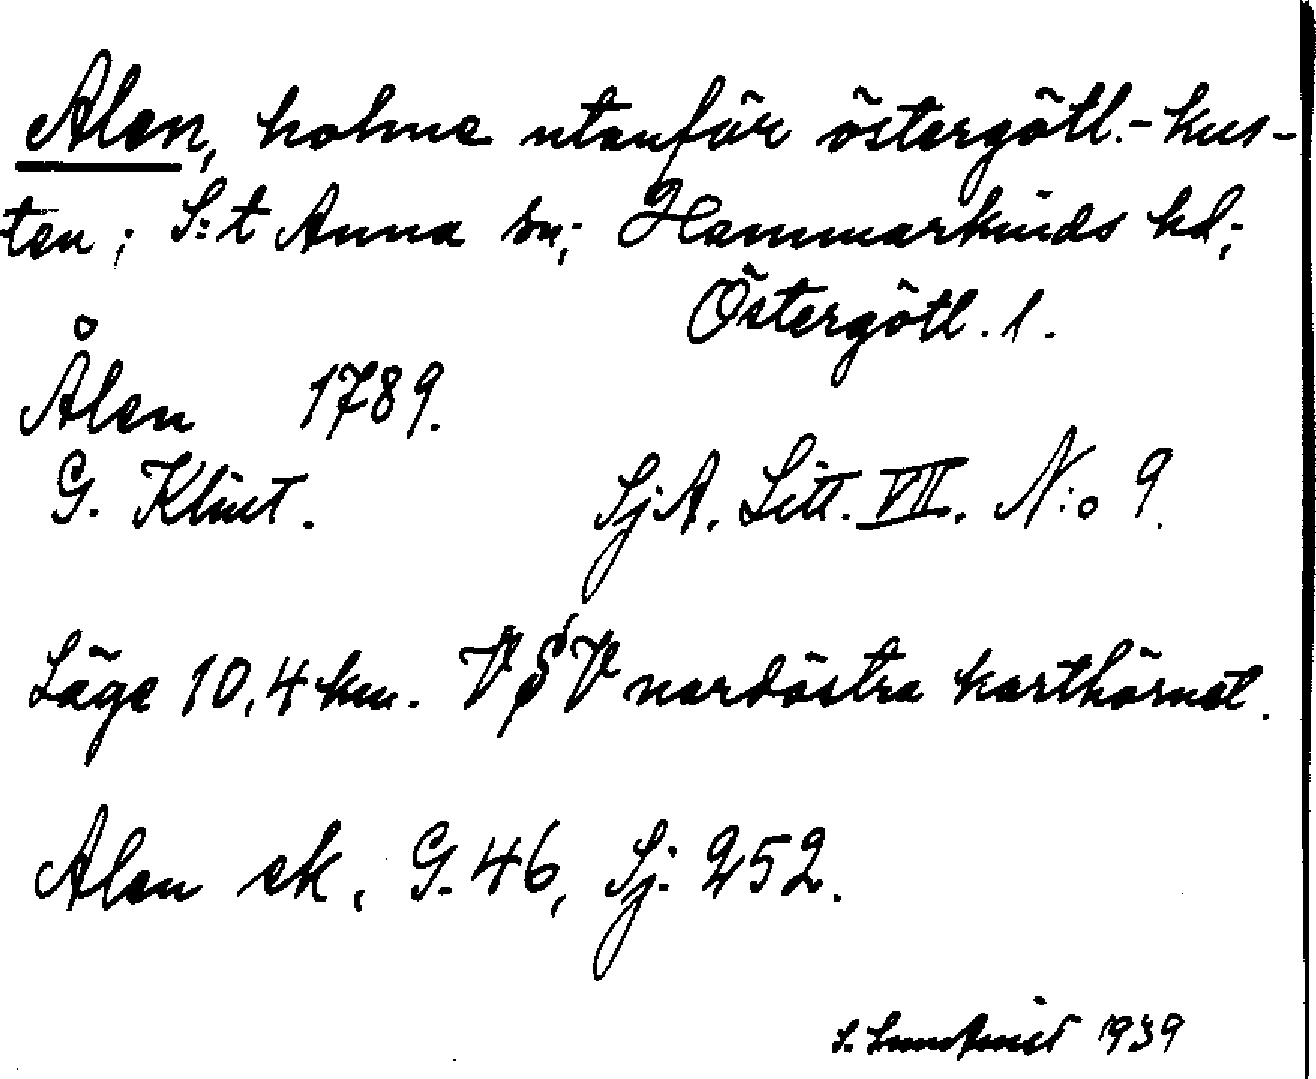 Alen, holme utanför östergötl.-kus-
ten; S:t Anna sn; Hammarkinds hd;
Östergötl. l.
Ålen 1789.
G. Klint. SjA. Litt. VII. N:o 9.
Läge 10,4 km. VSV nordöstra karthörnet.
Alen ek. G. 46, Sj. 252.
S. 1939